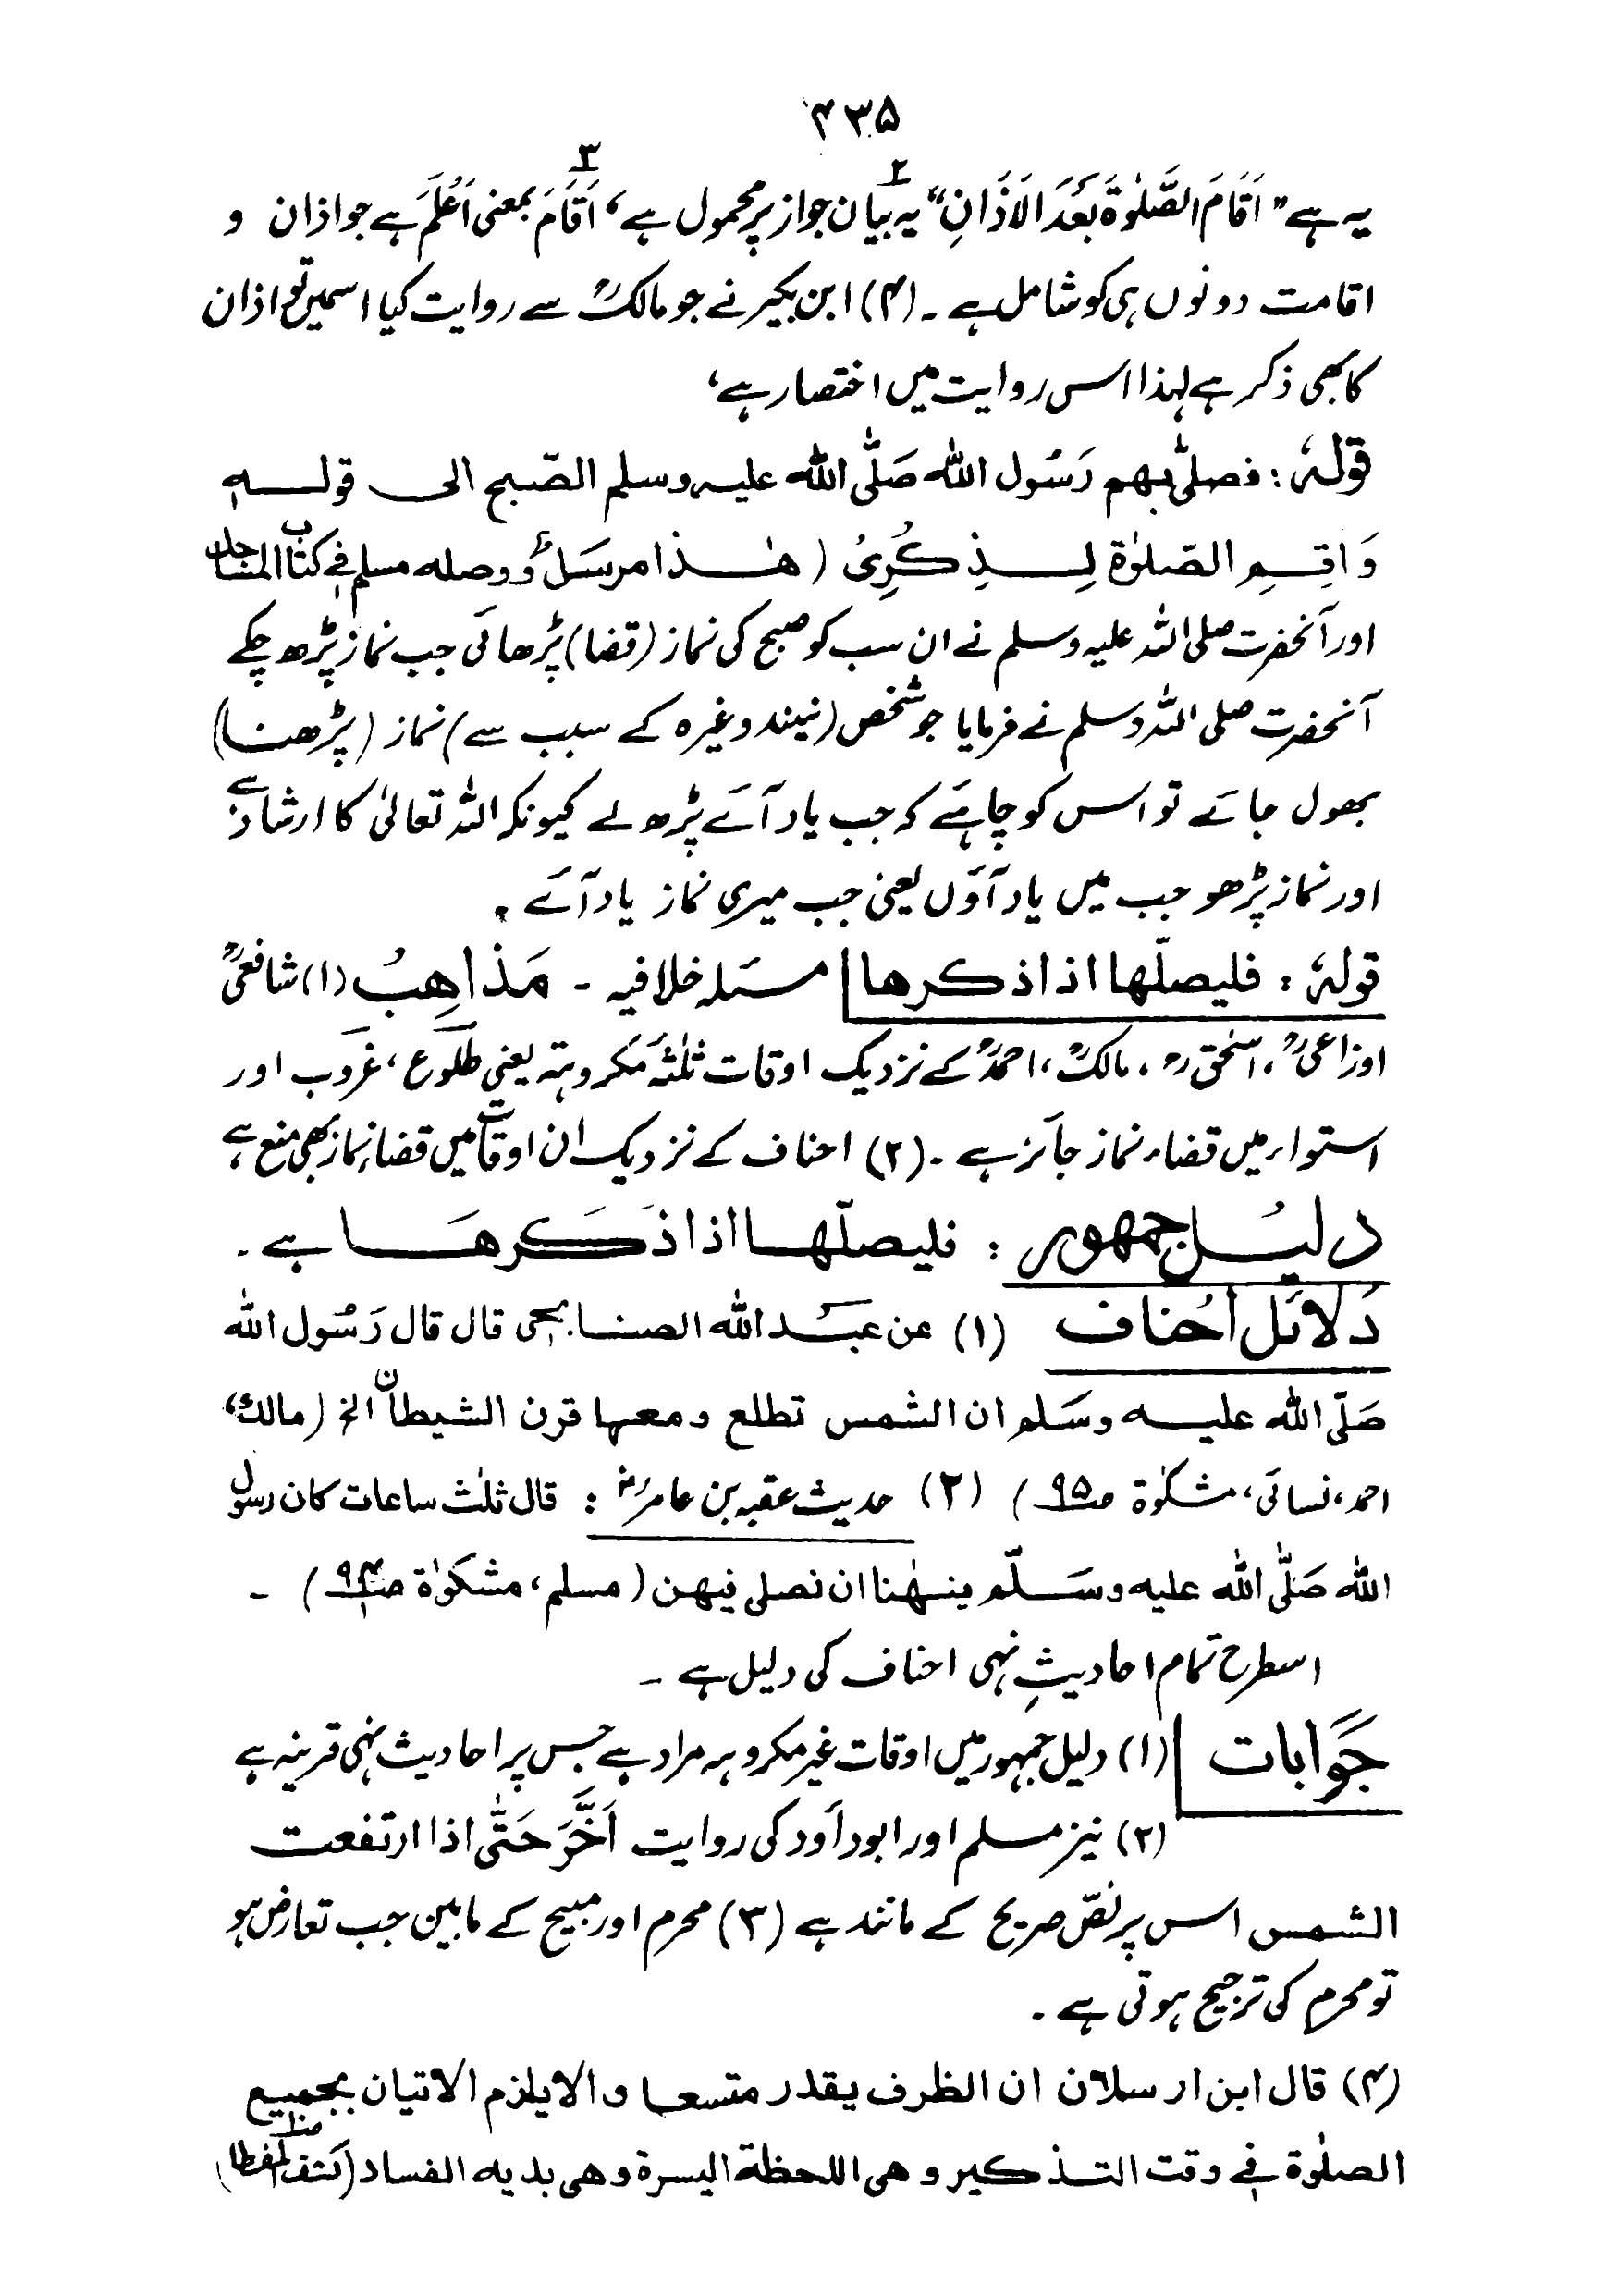 ۴۳۵
یہ ہے ”اَقَامَ الصَّلٰوۃَ بَعْدَ الْاَذَانِ“ ۲ یہ بیان جواز پر محمول ہے، ۳ اَقَامَ بمعنی اَعْلَمَ ہے جو اذان و
اقامت دونوں ہی کو شامل ہے ۔ (۴) ابن بکیر نے جو مالکؒ سے روایت کیا اسمیں تو اذان
کا بھی ذکر ہے لہٰذا اس روایت میں اختصار ہے،
قولہٗ : فصلیّٰ بھم رَسُول اللّٰہ صَلَّی اللّٰہ علیہ وسلم الصّبح الی قولہٖ
وَاقِمِ الصّلوٰۃ لِذِکْرِیْ (ھٰذا مرسَلٌ ووصلہ مسلم فی کتاب المساجد
اور آنحضرت صلی اللہ علیہ وسلم نے ان سب کو صبح کی نماز (قضا) پڑھائی جب نماز پڑھ چکے
آنحضرت صلی اللہ وسلم نے فرمایا جو شخص (نیند وغیرہ کے سبب سے) نماز (پڑھنا)
بھول جائے تو اس کو چاہئے کہ جب یاد آئے پڑھ لے کیونکہ اللہ تعالیٰ کا ارشاد ہے
اور نماز پڑھو جب میں یاد آؤں یعنی جب میری نماز یاد آئے ۔
قولہٗ : فلیصلّھا اذا ذکرھا مسئلہ خلافیہ ۔ مَذاھِبُ (۱) شافعیؒ
اوزاعیؒ، اسحٰق رح، مالکؒ، احمدؒ کے نزدیک اوقات ثلٰثہ مکروہہ یعنی طلوع، غروب اور
استواء میں قضاء نماز جائز ہے ۔ (۲) احناف کے نزدیک ان اوقات میں قضاء نماز بھی منع ہے
دلیل جمہور : فلیصلّھا اذا ذَکَرھَا ہے ۔
دَلائل اَحناف (۱) عن عبد اللّٰہ الصنابحی قال قال رَسُول اللّٰہ
صَلّی اللّٰہ علیہ وسَلم ان الشمس تطلع ومعھا قرن الشیطان الخ (مالک،
احمد، نسائی، مشکوٰۃ ص۹۵) (۲) حدیث عقبہ بن عامرؓ : قال ثلٰث ساعات کان رسول
اللّٰہ صَلَّی اللّٰہ علیہ وسَلّم ینھٰنا ان نصلی فیھن (مسلم، مشکوٰۃ ص۹۴) ۔
اسطرح تمام احادیثِ نہی احناف کی دلیل ہے ۔
جَوَابات (۱) دلیل جمہور میں اوقات غیر مکروہہ مراد ہے جس پر احادیث نہی قرینہ ہے
(۲) نیز مسلم اور ابوداؤد کی روایت اَخَّرَ حَتّٰی اذا ارتفعت
الشمس اس پر نصّ صریح کے مانند ہے (۳) محرم اور مبیح کے مابین جب تعارض ہو
تو محرم کی ترجیح ہوتی ہے ۔
(۴) قال ابن ارسلان ان الظرف یقدر متسعا والا یلزم الاتیان بجمیع
الصلٰوۃ فی وقت التذکیر وھی اللحظۃ الیسرۃ وھی بدیہ الفساد (کشف المغطا